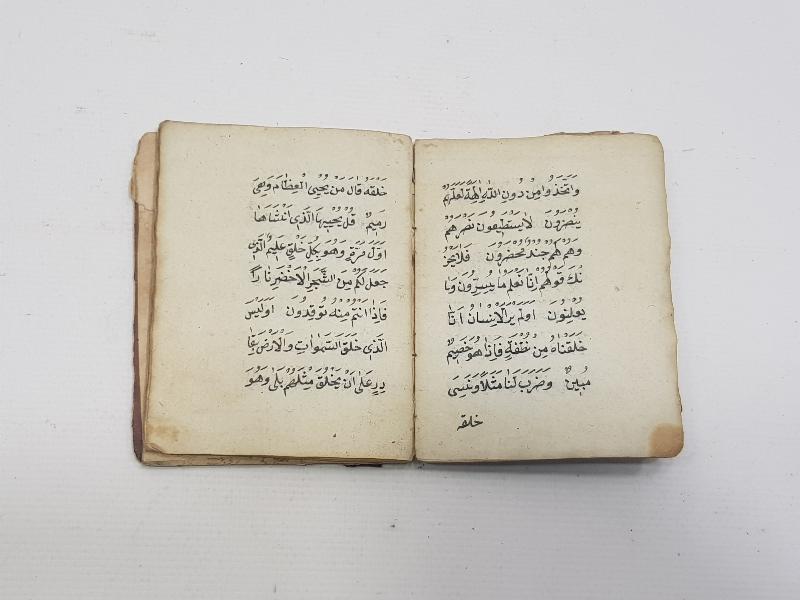 وَاتَّخَذُوا مِنْ دُونِ اللّٰهِ اٰلِهَةً لَعَلَّهُمْ
يُنْصَرُونَ لَا يَسْتَطِيعُونَ نَصْرَهُمْ
وَهُمْ لَهُمْ جُنْدٌ مُحْضَرُونَ فَلَا يَحْزُ
نْكَ قَوْلُهُمْ اِنَّا نَعْلَمُ مَا يُسِرُّونَ وَمَا
يُعْلِنُونَ اَوَلَمْ يَرَ الْاِنْسَانُ اَنَّا
خَلَقْنَاهُ مِنْ نُطْفَةٍ فَاِذَا هُوَ خَصِيمٌ
مُبِينٌ وَضَرَبَ لَنَا مَثَلًا وَنَسِيَ
خلقه
خَلْقَهُ قَالَ مَنْ يُحْيِي الْعِظَامَ وَهِيَ
رَمِيمٌ قُلْ يُحْيِيهَا الَّذِي اَنْشَاَهَا
اَوَّلَ مَرَّةٍ وَهُوَ بِكُلِّ خَلْقٍ عَلِيمٌ الَّذِي
جَعَلَ لَكُمْ مِنَ الشَّجَرِ الْاَخْضَرِ نَارًا
فَاِذَا اَنْتُمْ مِنْهُ تُوقِدُونَ اَوَلَيْسَ
الَّذِي خَلَقَ السَّمٰوَاتِ وَالْاَرْضَ بِقَا
دِرٍ عَلٰى اَنْ يَخْلُقَ مِثْلَهُمْ بَلٰى وَهُوَ